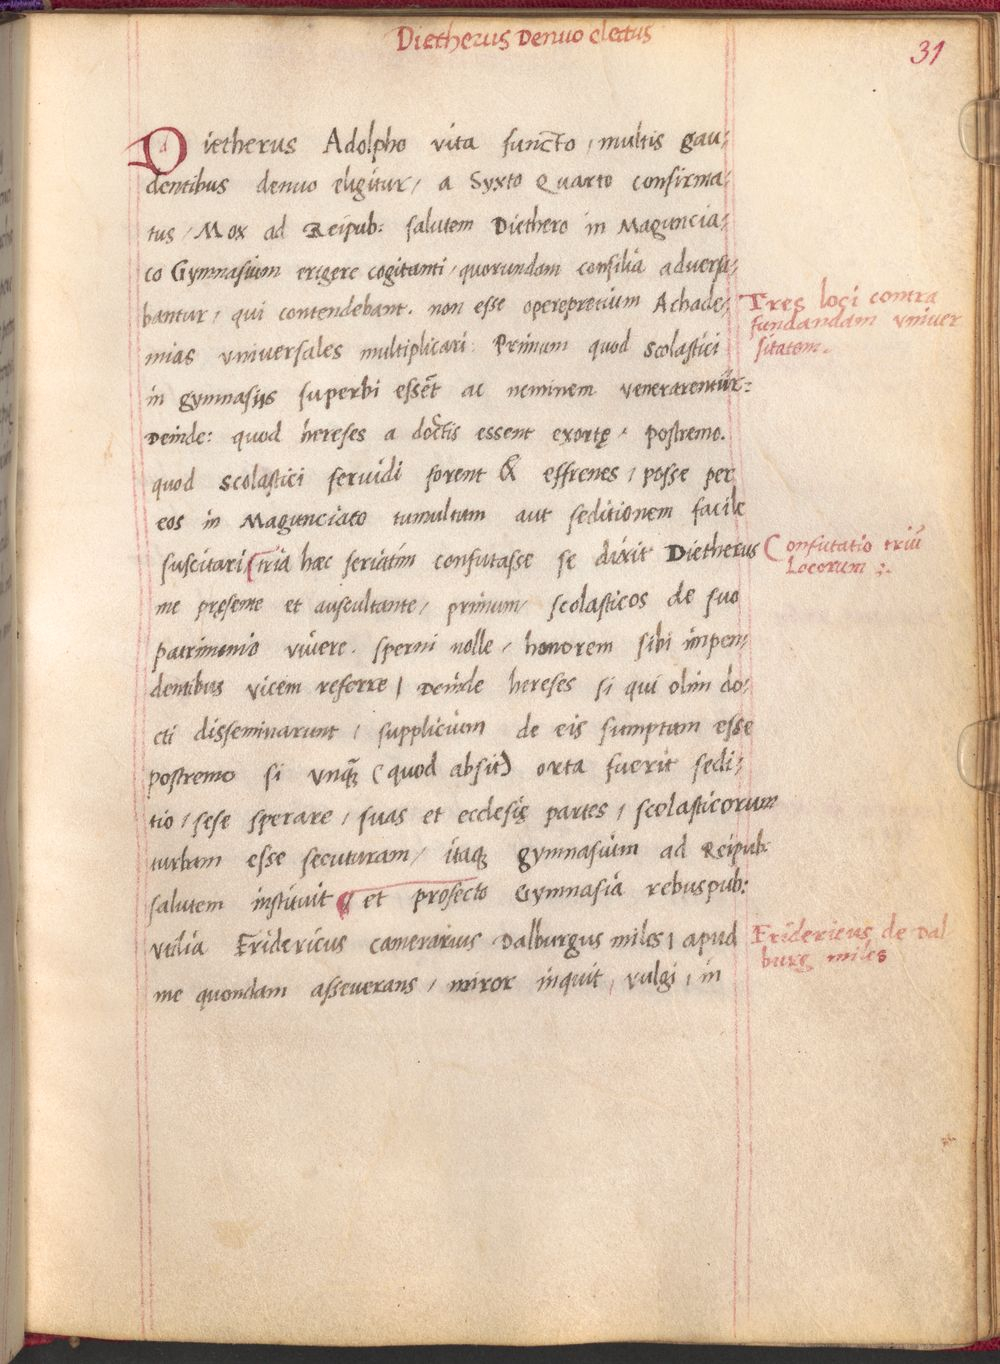 Dietherus Denuo electus
31
Dietherus Adolpho vita functo / multis gau:
dentibus denuo eligitur / a Syxto Quarto confirma:
tus / Mox ad Reipub: salutem Diethero in Maguncia:
co Gymnasium erigere cogitanti / quorundam consilia adversa:
bantur / qui contendebant. non esse operepretium Achade:
mias vniuersales multiplicari: Primum quod scolastici
in gymnasijs superbi essēt ac neminem venerarentur:
Deinde: quod hereses a doctis essent exortę / postremo.
quod scolastici feruidi forent & effrenes / posse per
eos in Magunciaco tumultum aut seditionem facile
suscitari / tria hæc seriatim confutasse se dixit Dietherus
me pręsente et auscultante / primum / scolasticos de suo
patrimonio viuere. sperni nolle / honorem sibi impen:
dentibus vicem referre / Deinde hereses si qui olim do:
cti disseminarunt / supplicium de eis sumptum esse
postremo si vnq̄ (quod absit) orta fuerit sedi:
tio / sese sperare / suas et ecclesię partes / scolasticorum
turbam esse secuturam / itaq gymnasium ad Reipub:
salutem instituit et profecto Gymnasia rebuspub:
vtilia Fridericus camerarius Dalburgus miles / apud
me quondam asseuerans / miror inquit / vulgi / in
Tres loci contra
fundandam vniuer
sitatem.
Confutatio triū
Locorum :.
Fridericus de Dal
burg miles